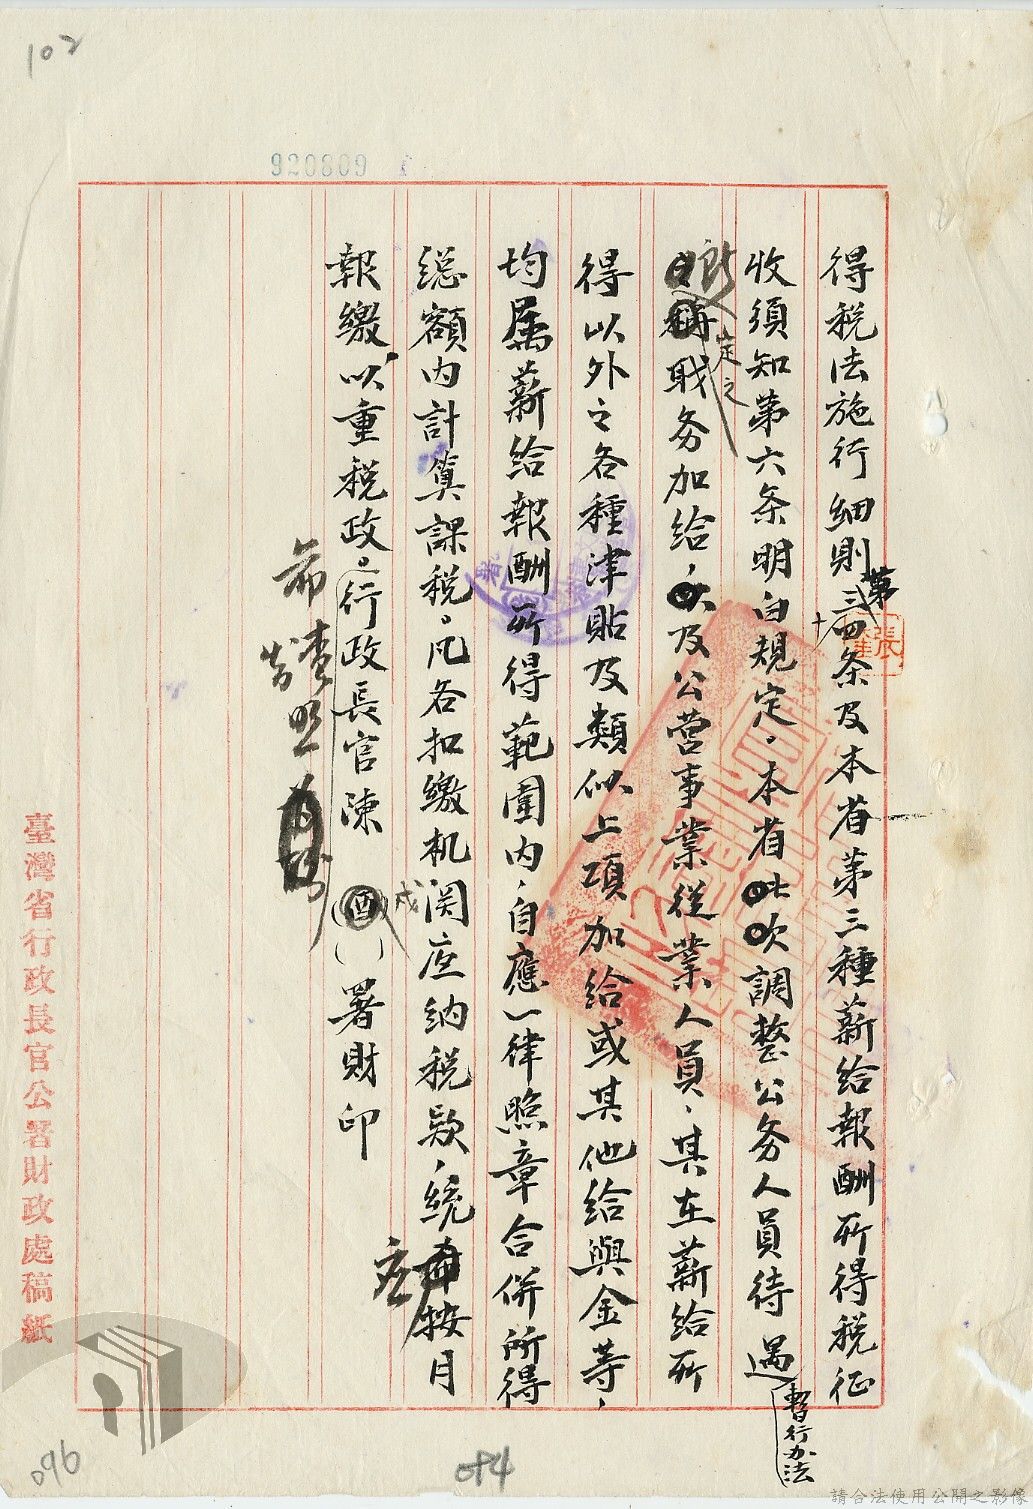 102
920809
得税法施行細則第三十四条及本省第三種薪給報酬所得税征
收須知第六条明白規定。本省此次調整公务人員待遇暫行办法
所定之職务加给，以及公营事業從業人員，其在薪给所
得以外之各種津貼及類似上項加给或其他给與金等，
均属薪给報酬所得範圍内，自應一律照章合併所得
總額内計算課税。凡各扣缴机関应纳税款，統应按月
報缴，以重税政。行政長官陳 戌（ ）署財印
臺灣省行政長官公署財政處稿紙
096
084
請合法使用公開之影像